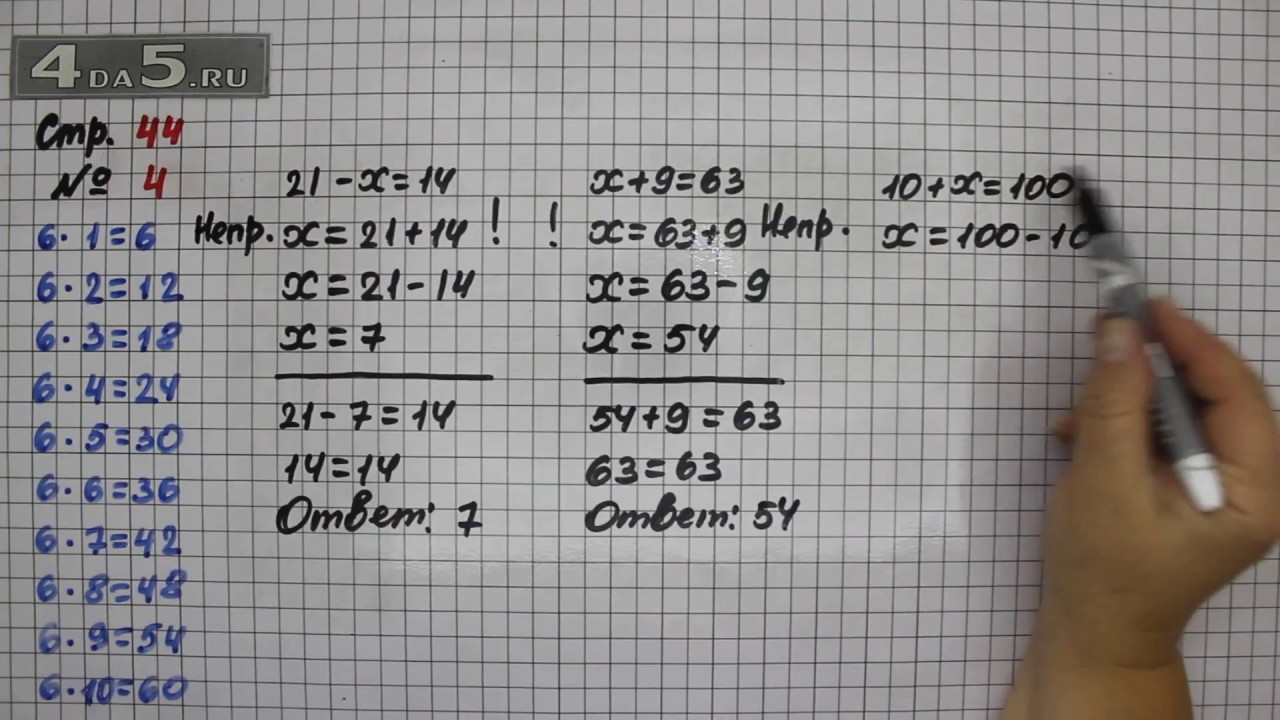 4DA5.RU
Стр. 44
№ 4
6·1=6
6·2=12
6·3=18
6·4=24
6·5=30
6·6=36
6·7=42
6·8=48
6·9=54
6·10=60
21-x=14
Непр. x=21+14 !
x=21-14
x=7
21-7=14
14=14
Ответ: 7
x+9=63
! x=63+9 Непр.
x=63-9
x=54
54+9=63
63=63
Ответ: 54
10+x=100
x=100-10